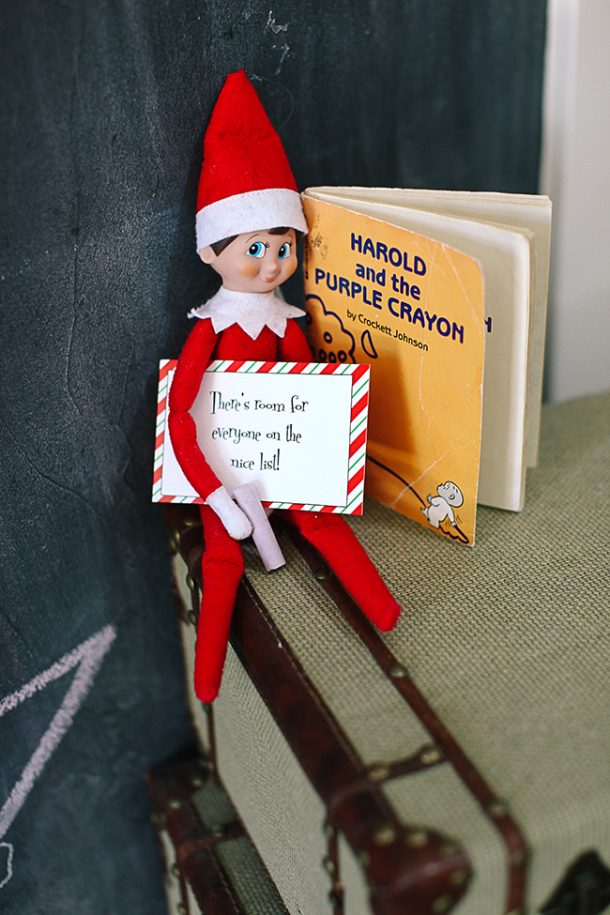 HAROLD
and the
PURPLE CRAYON
by Crockett Johnson
There's room for
everyone on the
nice list!